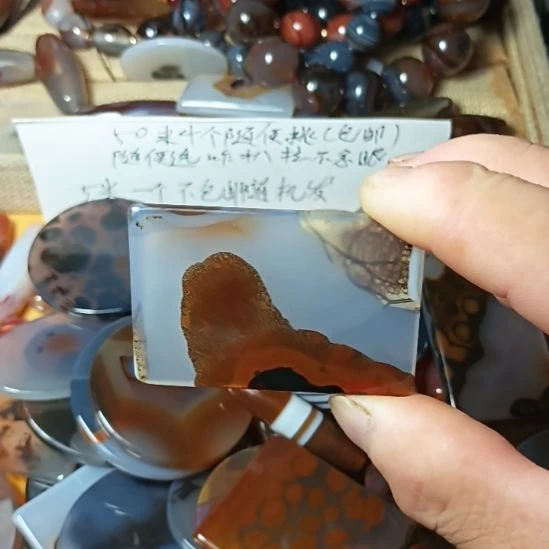 50米4个随便挑(包邮)
随便选咋扒拉不急眼
5米一个不包邮随机发